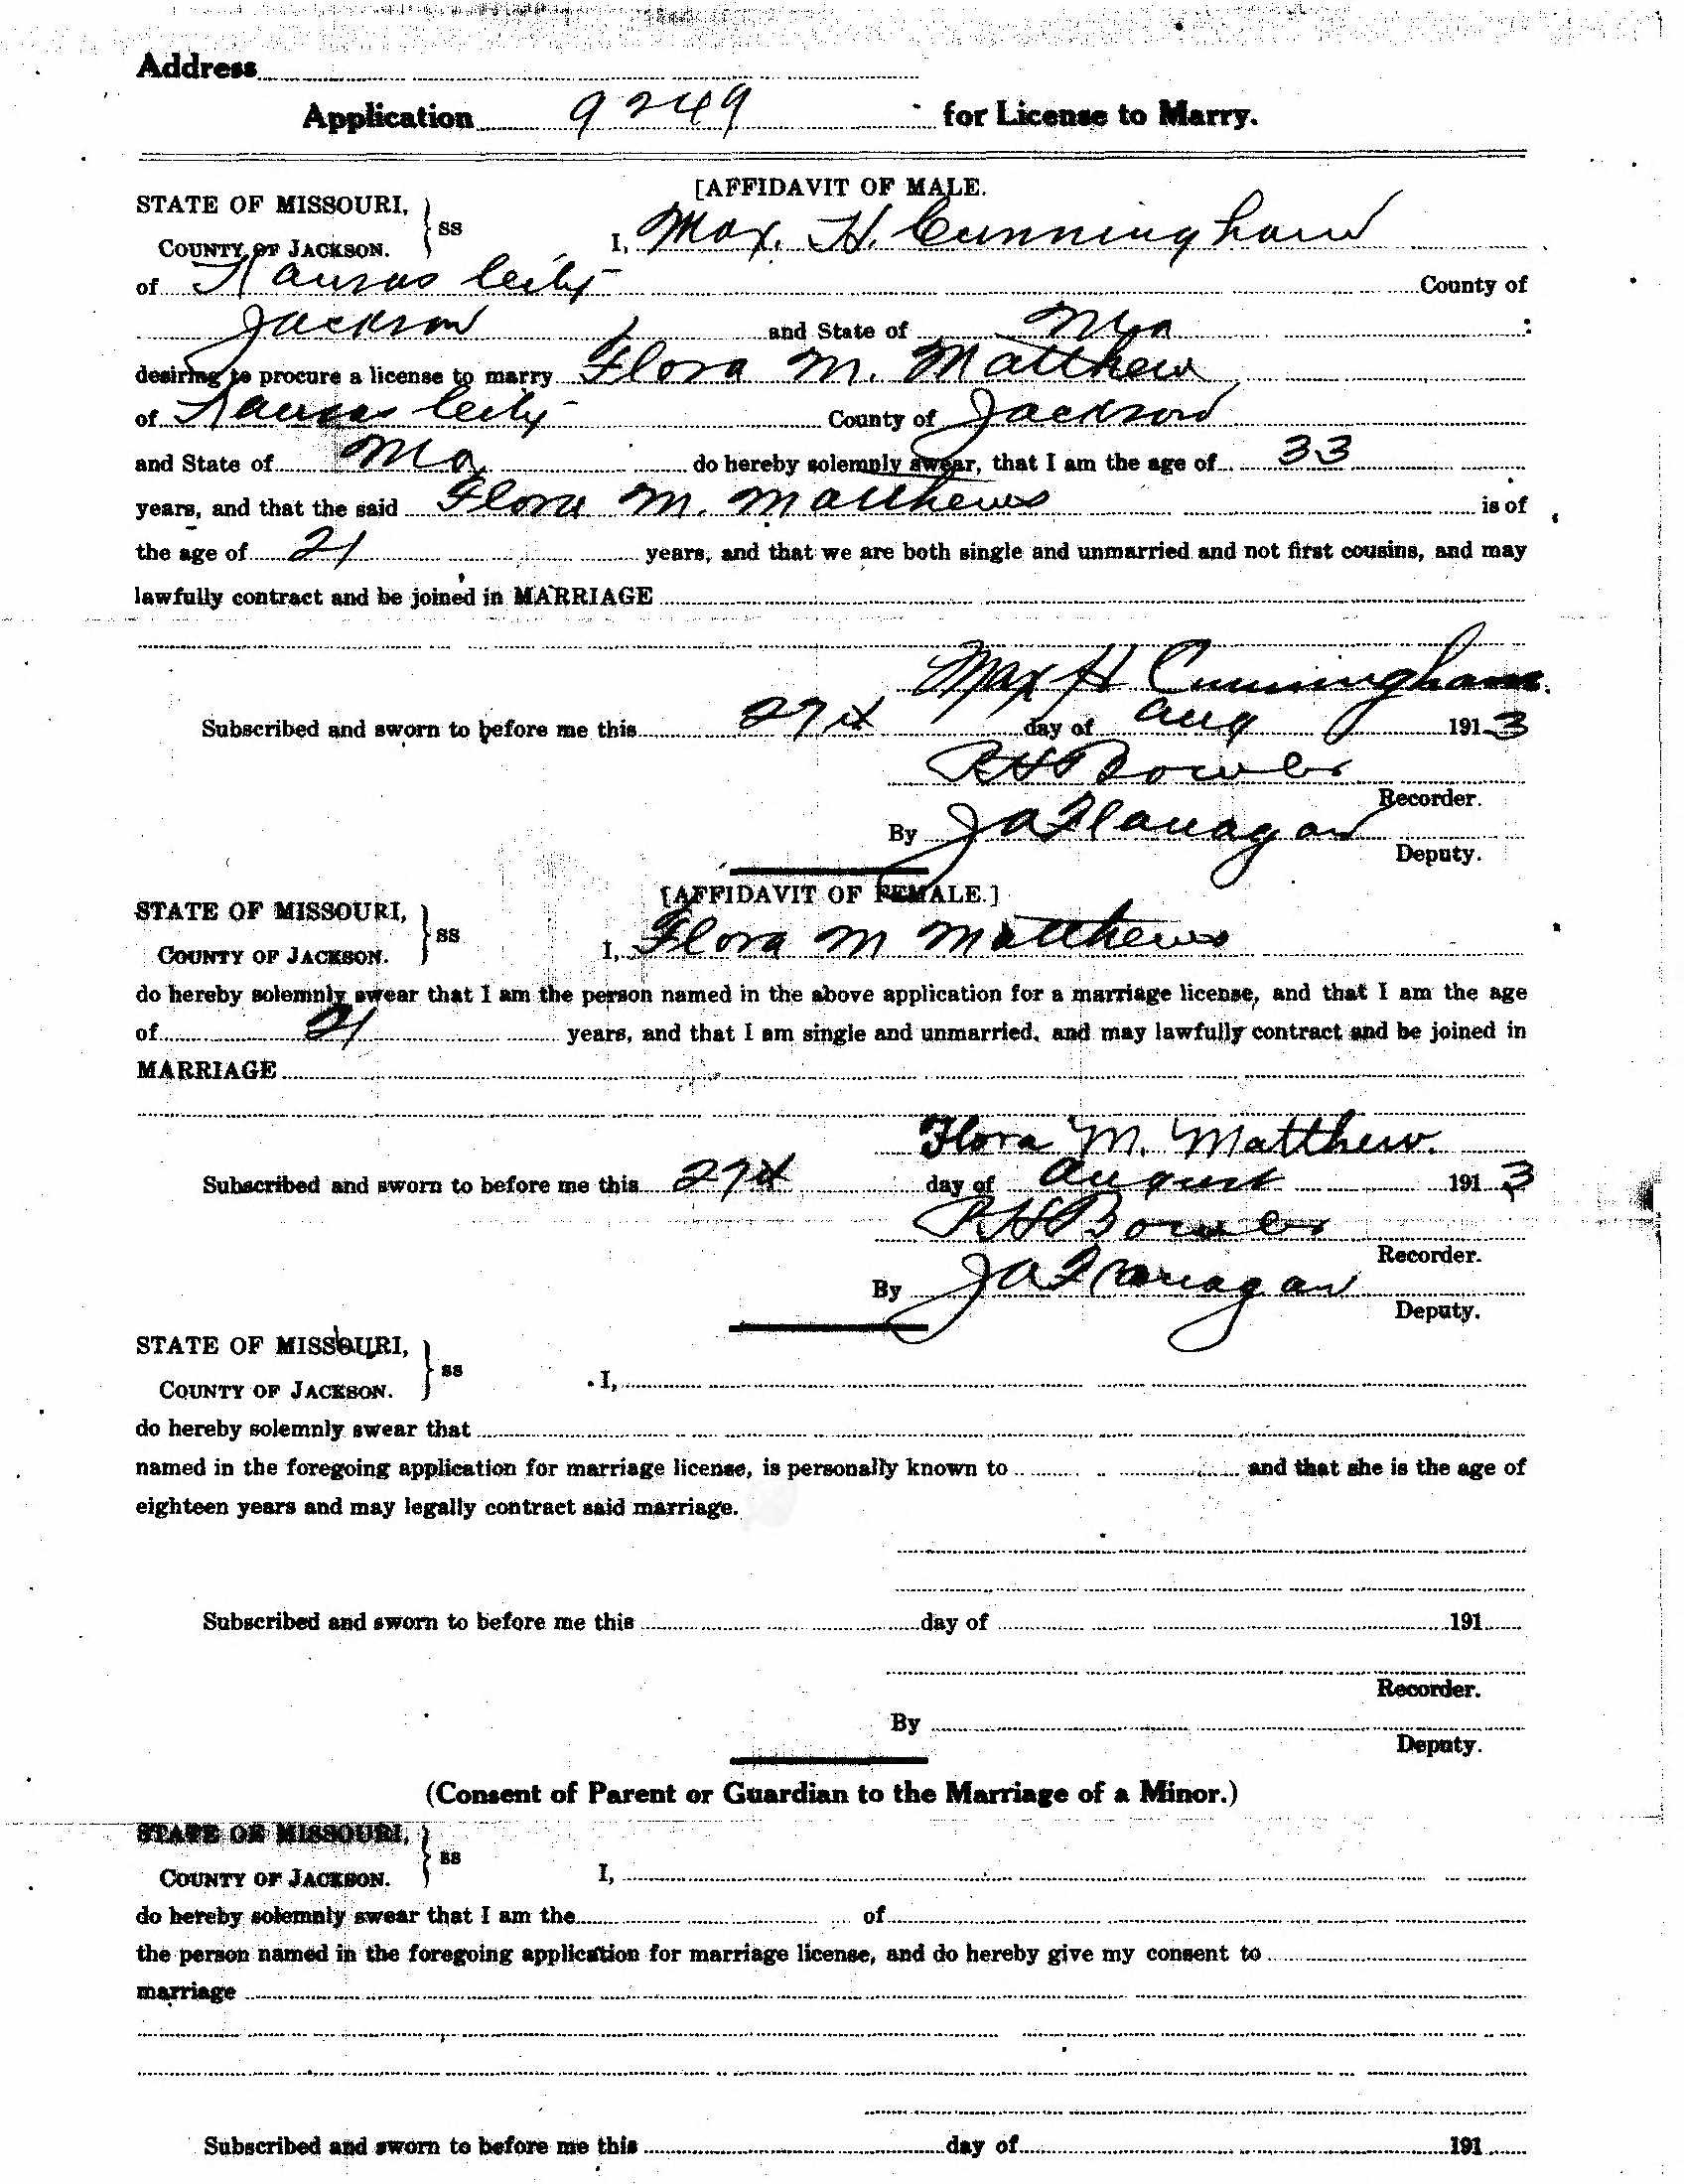 Address
Application 9249 for License to Marry.
[AFFIDAVIT OF MALE.
STATE OF MISSOURI,
COUNTY OF JACKSON. } ss I, Max. H. Cunningham
of Kansas City County of
Jackson and State of Mo :
desiring to procure a license to marry Flora M. Matthew
of Kansas City County of Jackson
and State of Mo do hereby solemnly swear, that I am the age of 33
years, and that the said Flora M. Matthews is of
the age of 21 years, and that we are both single and unmarried and not first cousins, and may
lawfully contract and be joined in MARRIAGE
Max H Cunningham.
Subscribed and sworn to before me this 27th day of Aug 1913
RH Bowler
Recorder.
By JA Flanagan
Deputy.
[AFFIDAVIT OF FEMALE.]
STATE OF MISSOURI,
COUNTY OF JACKSON. } ss I, Flora M Matthews
do hereby solemnly swear that I am the person named in the above application for a marriage license, and that I am the age
of 21 years, and that I am single and unmarried, and may lawfully contract and be joined in
MARRIAGE
Flora M. Matthew.
Subscribed and sworn to before me this 27th day of August 1913
RH Bowler
Recorder.
By JA Flanagan
Deputy.
STATE OF MISSOURI,
COUNTY OF JACKSON. } ss I,
do hereby solemnly swear that
named in the foregoing application for marriage license, is personally known to and that she is the age of
eighteen years and may legally contract said marriage.
Subscribed and sworn to before me this day of 191
Recorder.
By
Deputy.
(Consent of Parent or Guardian to the Marriage of a Minor.)
STATE OF MISSOURI,
COUNTY OF JACKSON. } ss I,
do hereby solemnly swear that I am the of
the person named in the foregoing application for marriage license, and do hereby give my consent to
marriage
Subscribed and sworn to before me this day of 191